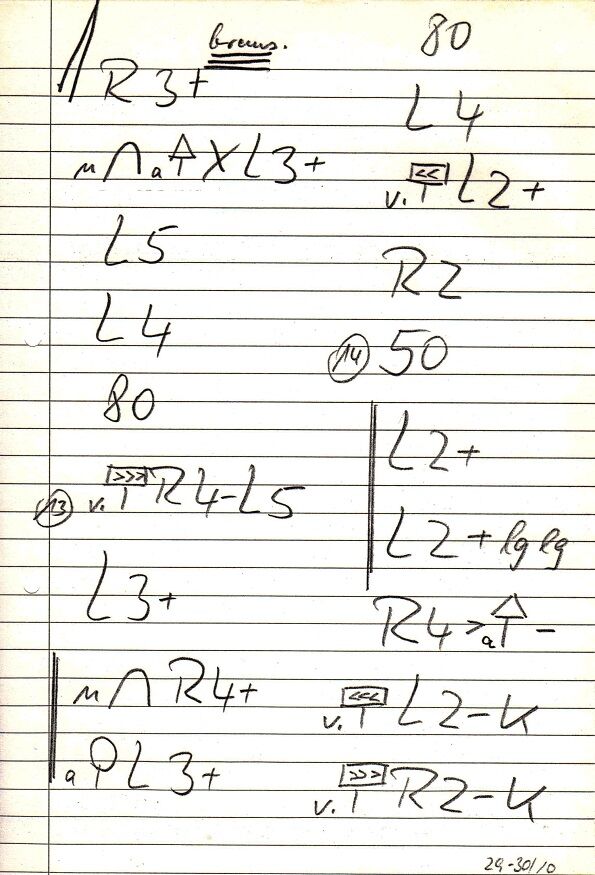 brems.
R3+
n∩a↑XL3+
L5
L4
80
13 v.>>>R4-L5
L3+
n∩R4+
aPL3+
80
L4
v.<<L2+
R2
14 50
L2+
L2+lglg
R4>a↑-
v.<<<L2-K
v.>>>R2-K
29-30/10